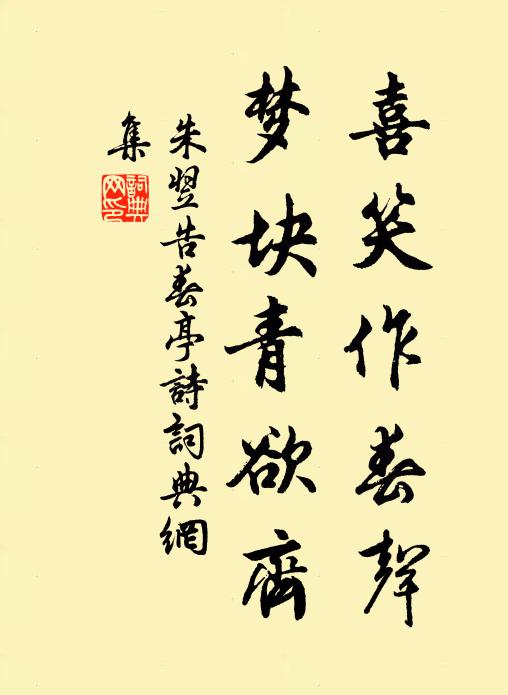 喜笑作春聲
梦块青欲齊
朱翌告春亭詩詞典網
集
詞典网印